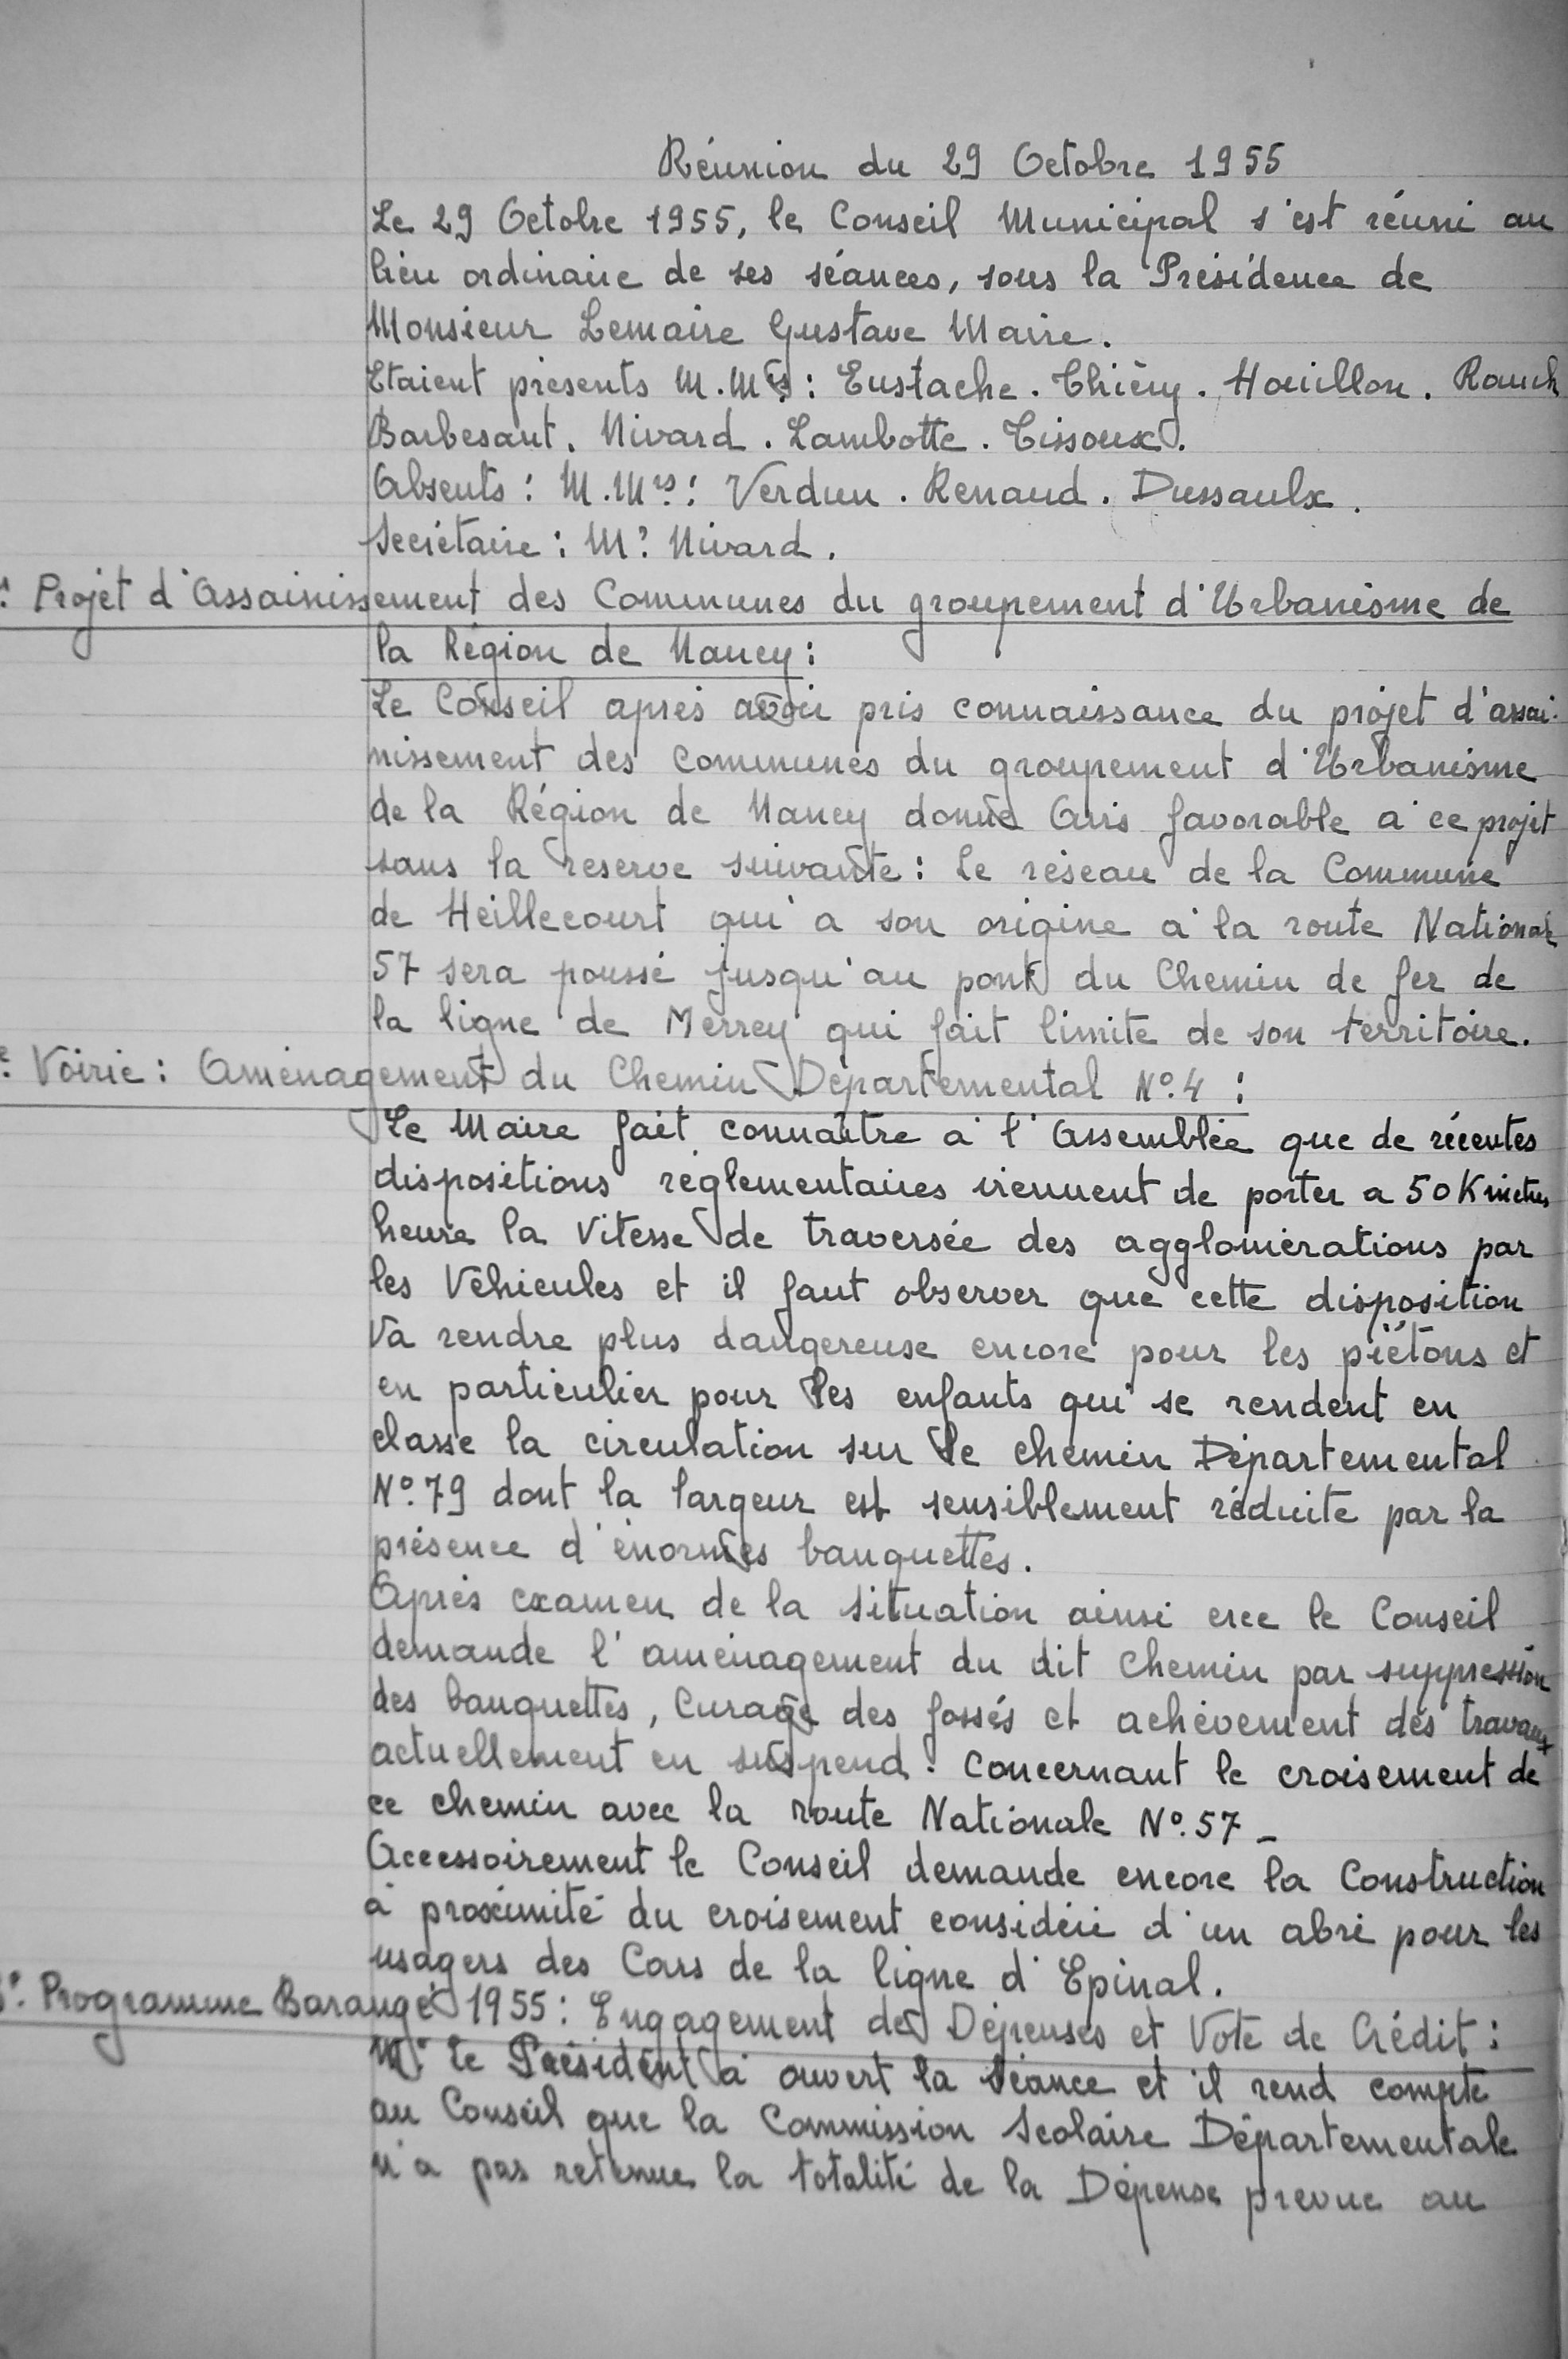 Réunion du 29 Octobre 1955
Le 29 Octobre 1955, le Conseil Municipal s'est réuni au
lieu ordinaire de ses séances, sous la Présidence de
Monsieur Lemaire Gustave Maire.
Etaient présents M.Mrs: Eustache. Thiéry. Houillon. Rauch
Barbesant. Nivard. Lambotte. Tissoux.
Absents: M.Mrs: Verdun. Renaud. Dussaulx.
Secrétaire: Mr Nivard.
Projet d'Assainissement des Communes du groupement d'Urbanisme de
la Région de Nancy:
Le Conseil après avoir pris connaissance du projet d'assai-
nissement des Communes du groupement d'Urbanisme
de la Région de Nancy donne Avis favorable à ce projet
sous la réserve suivante: le réseau de la Commune
de Heillecourt qui a son origine à la route Nationale
57 sera poussé jusqu'au pont du Chemin de fer de
la ligne de Merrey qui fait limite de son territoire.
Voirie: Aménagement du Chemin Départemental N°.4:
Le Maire fait connaître à l'Assemblée que de récentes
dispositions réglementaires viennent de porter a 50 Kmètres
heure la Vitesse de traversée des agglomérations par
les Véhicules et il faut observer que cette disposition
Va rendre plus dangereuse encore pour les piétons et
en particulier pour les enfants qui se rendent en
classe la circulation sur le chemin Départemental
N°.79 dont la largeur est sensiblement réduite par la
présence d'énormes banquettes.
Après examen de la situation ainsi cree le Conseil
demande l'aménagement du dit Chemin par suppression
des banquettes, Curage des fossés et achèvement des travaux
actuellement en suspend. Concernant le croisement de
ce chemin avec la route Nationale N°.57 _
Accessoirement le Conseil demande encore la Construction
à proximité du croisement considéré d'un abri pour les
usagers des Cars de la ligne d'Epinal.
Programme Barangé 1955: Engagement de Dépenses et Vote de Crédit:
Mr le Président a ouvert la séance et il rend compte
au Conseil que la Commission Scolaire Départementale
n'a pas retenue la totalité de la Dépense prevue au